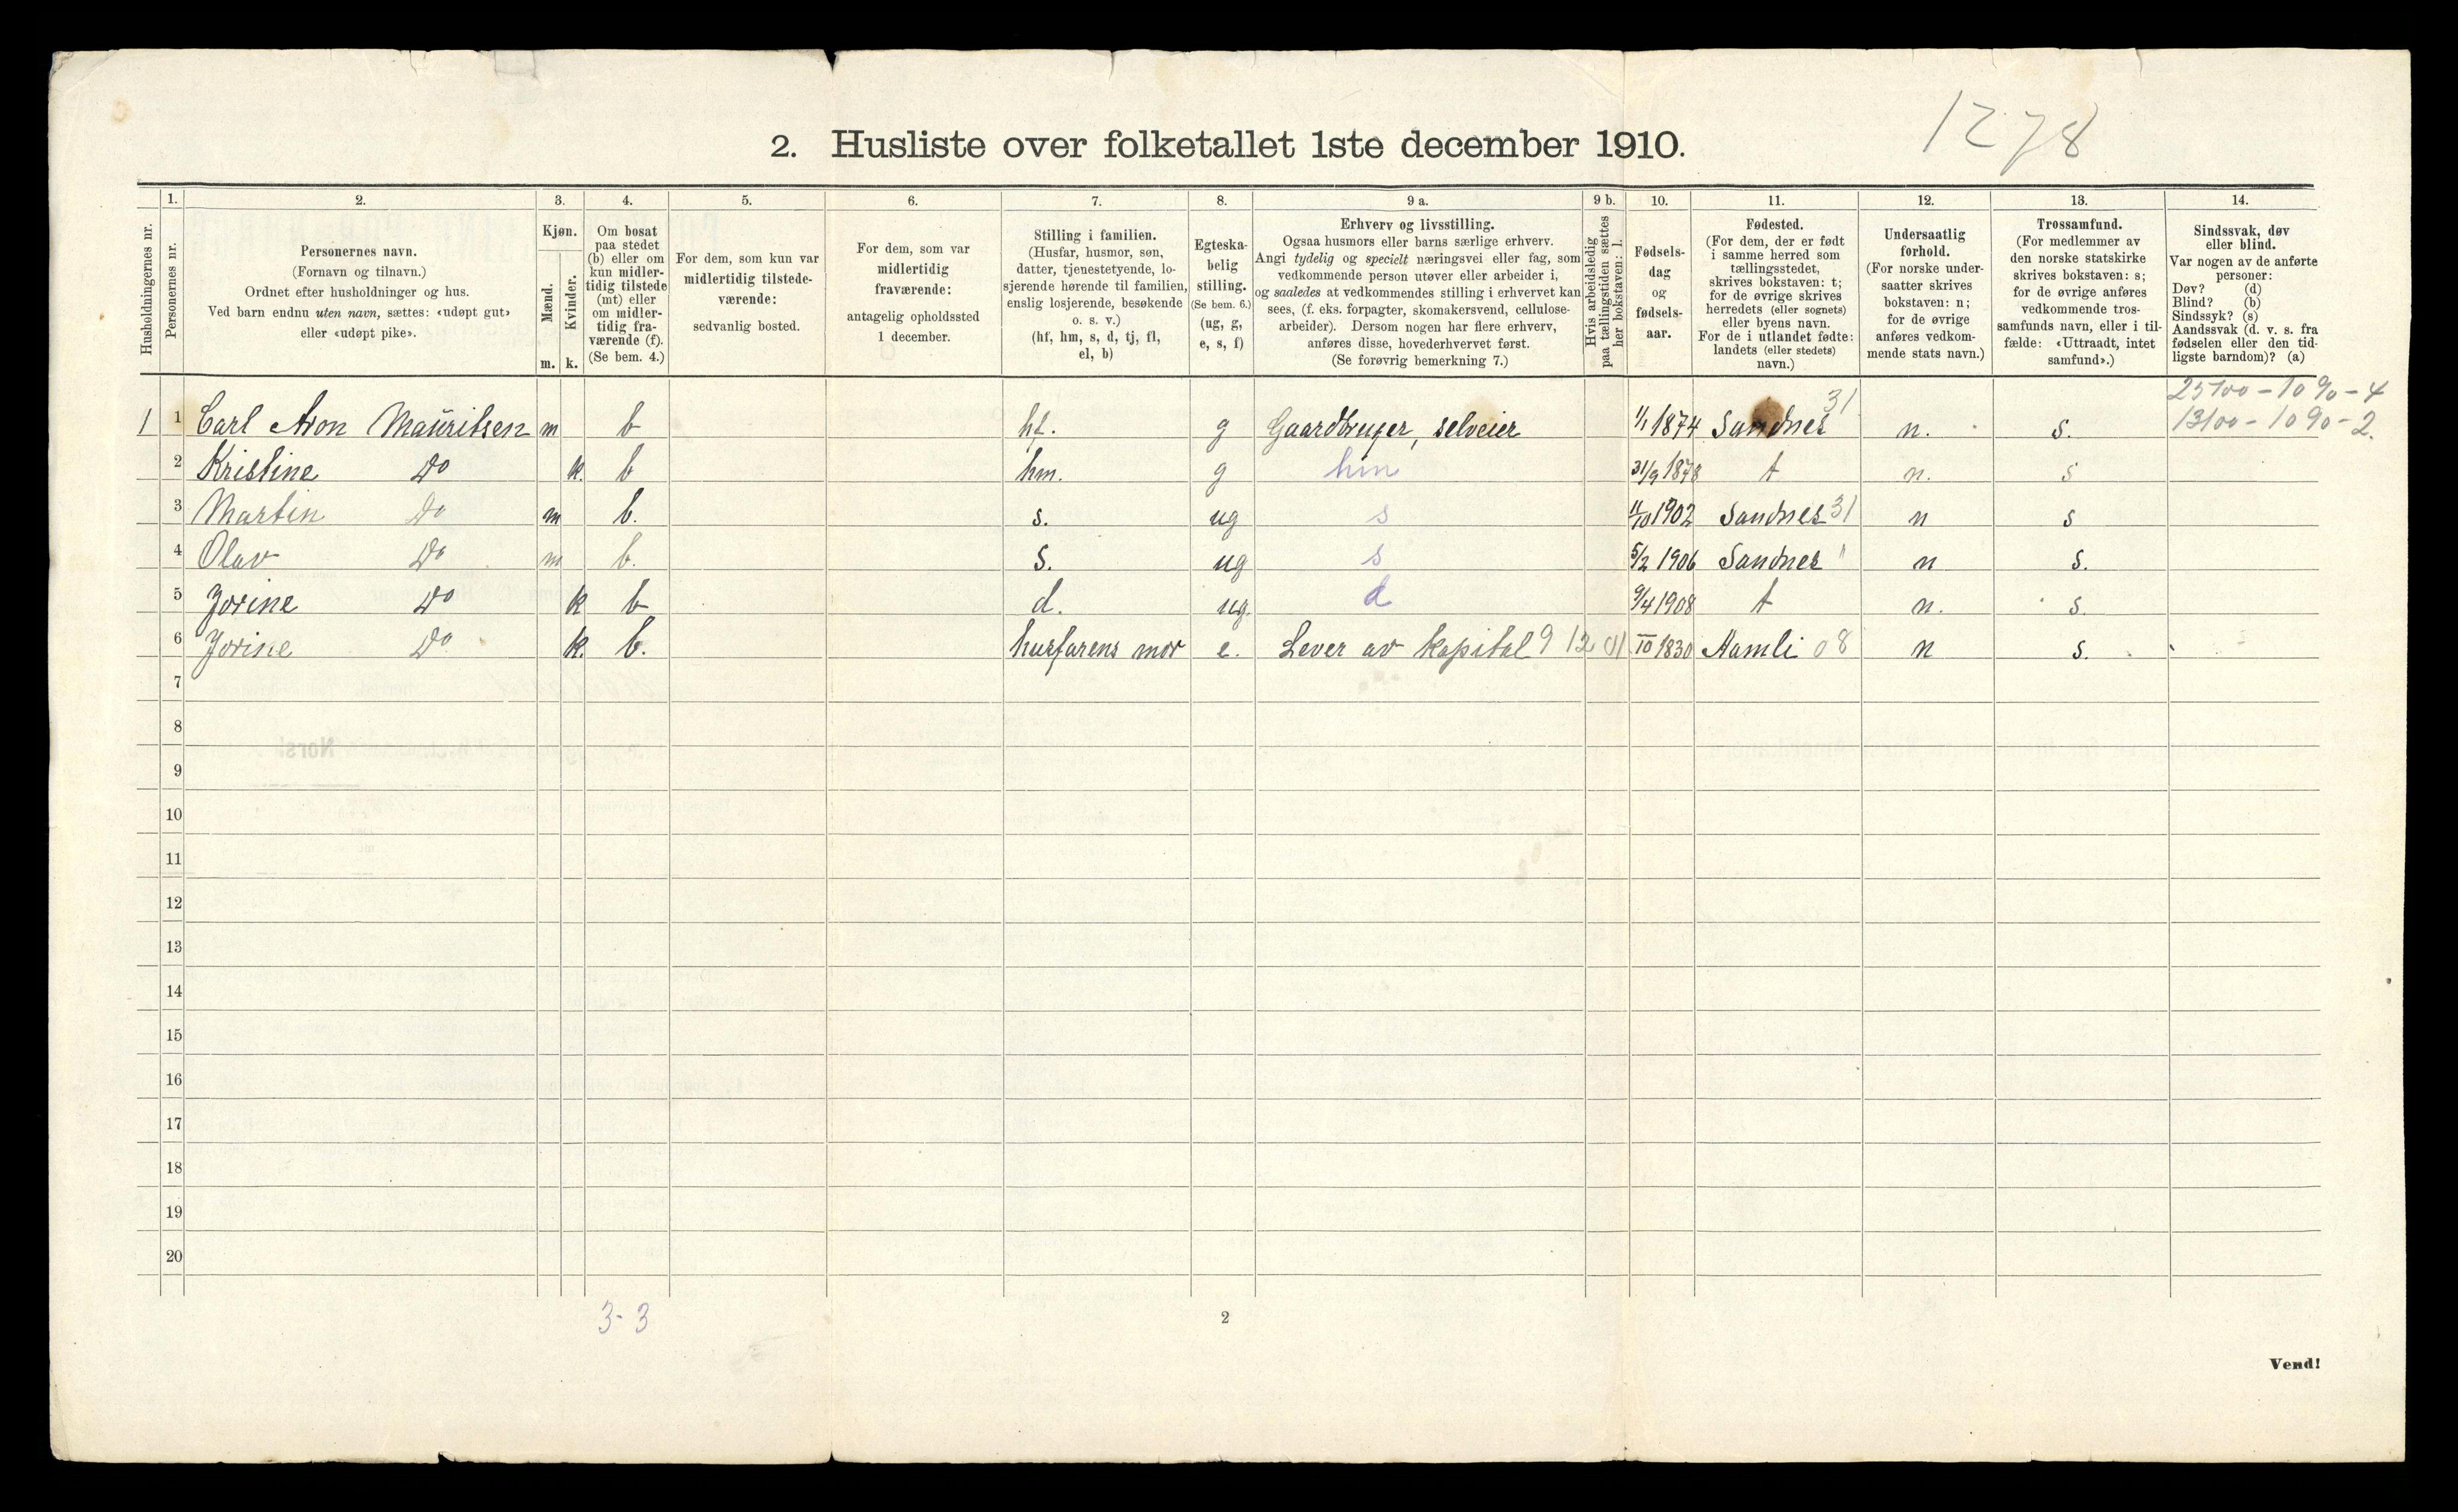 1278
2. Husliste over folketallet 1ste december 1910.
Husholdningernes nr.
1.
Personernes nr.
2.
Personernes navn.
(Fornavn og tilnavn.)
Ordnet efter husholdninger og hus.
Ved barn endnu uten navn, sættes: «udøpt gut»
eller «udøpt pike».
3.
Kjøn.
Mænd.
m.
Kvinder.
k.
4.
Om bosat
paa stedet
(b) eller om
kun midler-
tidig tilstede
(mt) eller
om midler-
tidig fra-
værende (f).
(Se bem. 4.)
5.
For dem, som kun var
midlertidig tilstede-
værende:
sedvanlig bosted.
6.
For dem, som var
midlertidig
fraværende:
antagelig opholdssted
1 december.
7.
Stilling i familien.
(Husfar, husmor, søn,
datter, tjenestetyende, lo-
sjerende hørende til familien,
enslig losjerende, besøkende
o. s. v.)
(hf, hm, s, d, tj, fl,
el, b)
8.
Egteska-
belig
stilling.
(Se bem. 6.)
(ug, g,
e, s, f)
9 a.
Erhverv og livsstilling.
Ogsaa husmors eller barns særlige erhverv.
Angi tydelig og specielt næringsvei eller fag, som
vedkommende person utøver eller arbeider i,
og saaledes at vedkommendes stilling i erhvervet kan
sees, (f. eks. forpagter, skomakersvend, cellulose-
arbeider). Dersom nogen har flere erhverv,
anføres disse, hovederhvervet først.
(Se forøvrig bemerkning 7.)
9 b.
Hvis arbeidsledig
paa tællingstiden sættes
her bokstaven: l.
10.
Fødsels-
dag
og
fødsels-
aar.
11.
Fødested.
(For dem, der er født
i samme herred som
tællingsstedet,
skrives bokstaven: t;
for de øvrige skrives
herredets (eller sognets)
eller byens navn.
For de i utlandet fødte:
landets (eller stedets)
navn.)
12.
Undersaatlig
forhold.
(For norske under-
saatter skrives
bokstaven: n;
for de øvrige
anføres vedkom-
mende stats navn.)
13.
Trossamfund.
(For medlemmer av
den norske statskirke
skrives bokstaven: s;
for de øvrige anføres
vedkommende tros-
samfunds navn, eller i til-
fælde: «Uttraadt, intet
samfund».)
14.
Sindssvak, døv
eller blind.
Var nogen av de anførte
personer:
Døv? (d)
Blind? (b)
Sindssyk? (s)
Aandssvak (d. v. s. fra
fødselen eller den tid-
ligste barndom)? (a)
25100 - 1090 - 4
1 1 Carl Aron Mauritsen m b hf. g Gaardbruger, selveier 1/1 1874 Sandnes 31 n. s. 13100 - 1090 - 2.
2 Kristine Do k. b hm. g hm 31/9 1878 t n. s
3 Martin Do m b. s. ug s 11/10 1902 Sandnes 31 n s
4 Olav Do m b. s. ug s 5/2 1906 Sandnes " n s.
5 Jorine Do k b d. ug. d 9/4 1908 t n. s.
6 Jorine Do k. b. husfarens mor e. Lever av kapital 9 12 01 1830 Aamli 08 n s.
7
8
9
10
11
12
13
14
15
16
17
18
19
20
3-3
2
Vend!